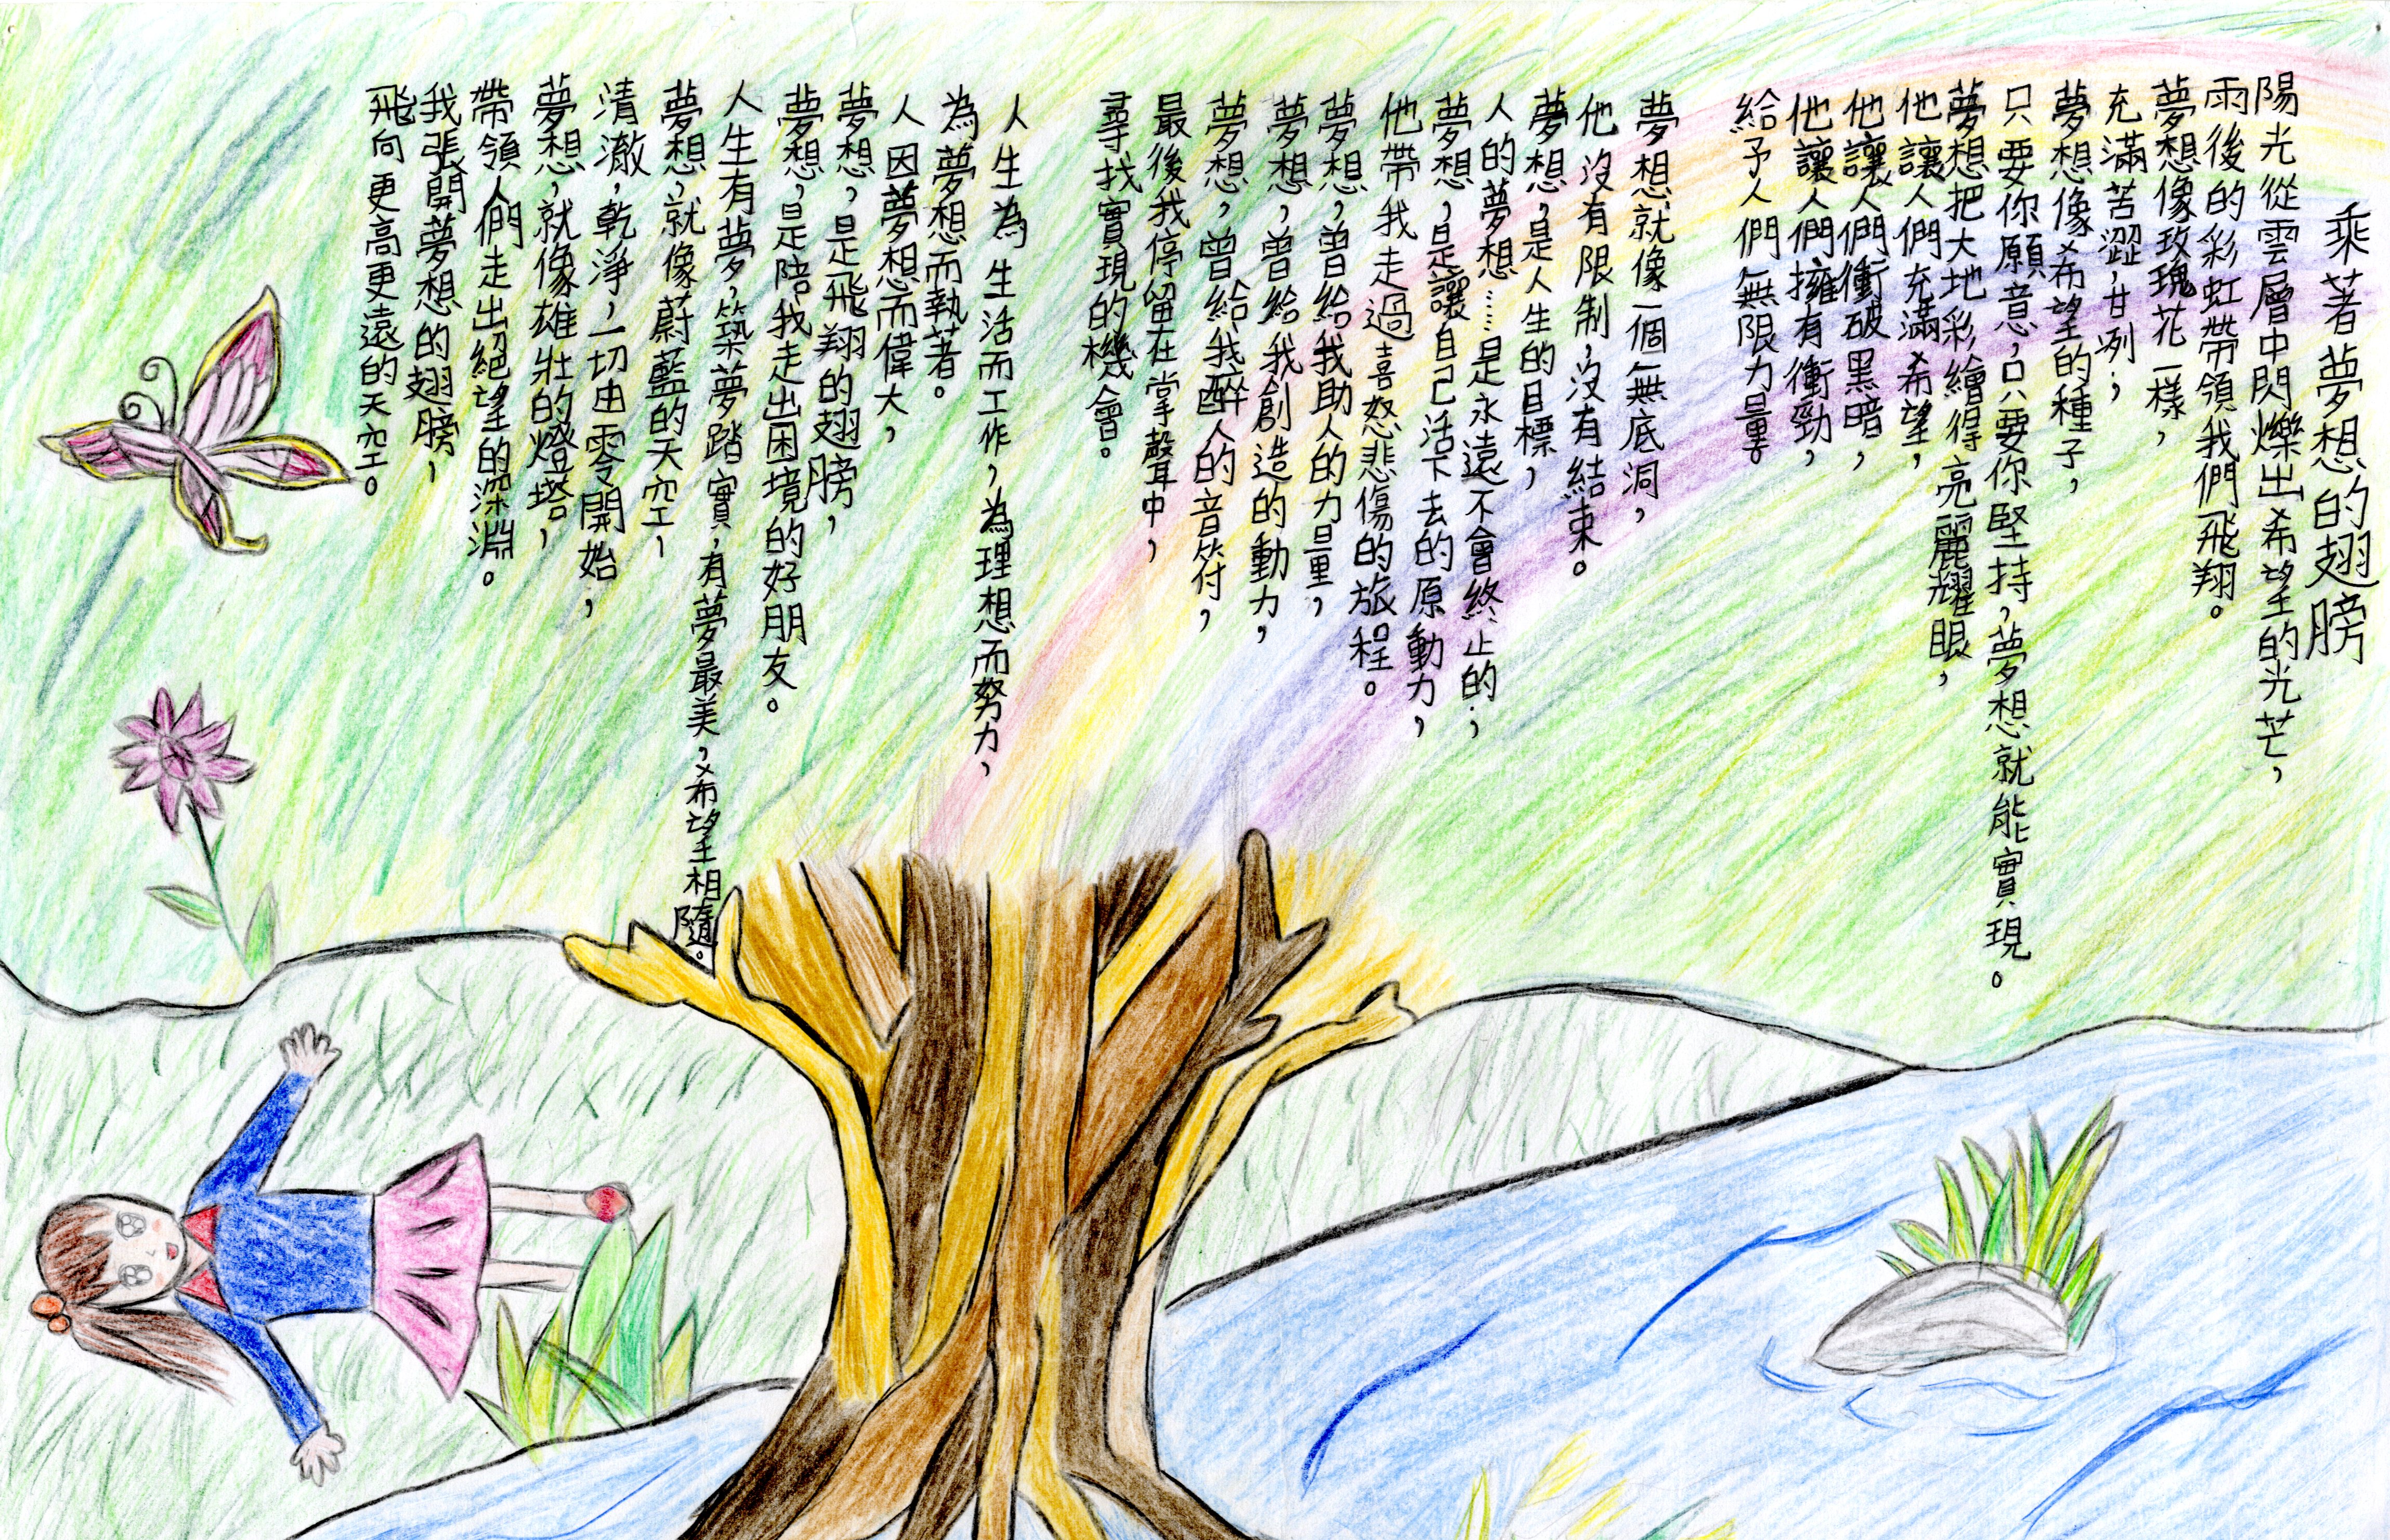 乘著夢想的翅膀
陽光從雲層中閃爍出希望的光芒，
雨後的彩虹帶領我們飛翔。
夢想像玫瑰花一樣，
充滿苦澀，甘冽；
夢想像希望的種子，
只要你願意，只要你堅持，夢想就能實現。
夢想把大地彩繪得亮麗耀眼，
他讓人們充滿希望，
他讓人們衝破黑暗，
他讓人們擁有衝勁，
給予人們無限力量。
夢想就像一個無底洞，
他沒有限制，沒有結束。
夢想，是人生的目標，
人的夢想……是永遠不會終止的；
夢想，是讓自己活下去的原動力，
他帶我走過喜怒悲傷的旅程。
夢想，曾給我助人的力量，
夢想，曾給我創造的動力，
夢想，曾給我醉人的音符，
最後我停留在掌聲中，
尋找實現的機會。
人生為生活而工作，為理想而努力，
為夢想而執著。
人因夢想而偉大，
夢想，是飛翔的翅膀，
夢想，是陪我走出困境的好朋友。
人生有夢，築夢踏實，有夢最美，希望相隨。
夢想，就像蔚藍的天空，
清澈，乾淨，一切由零開始；
夢想，就像雄壯的燈塔，
帶領人們走出絕望的深淵。
我張開夢想的翅膀，
飛向更高更遠的天空。